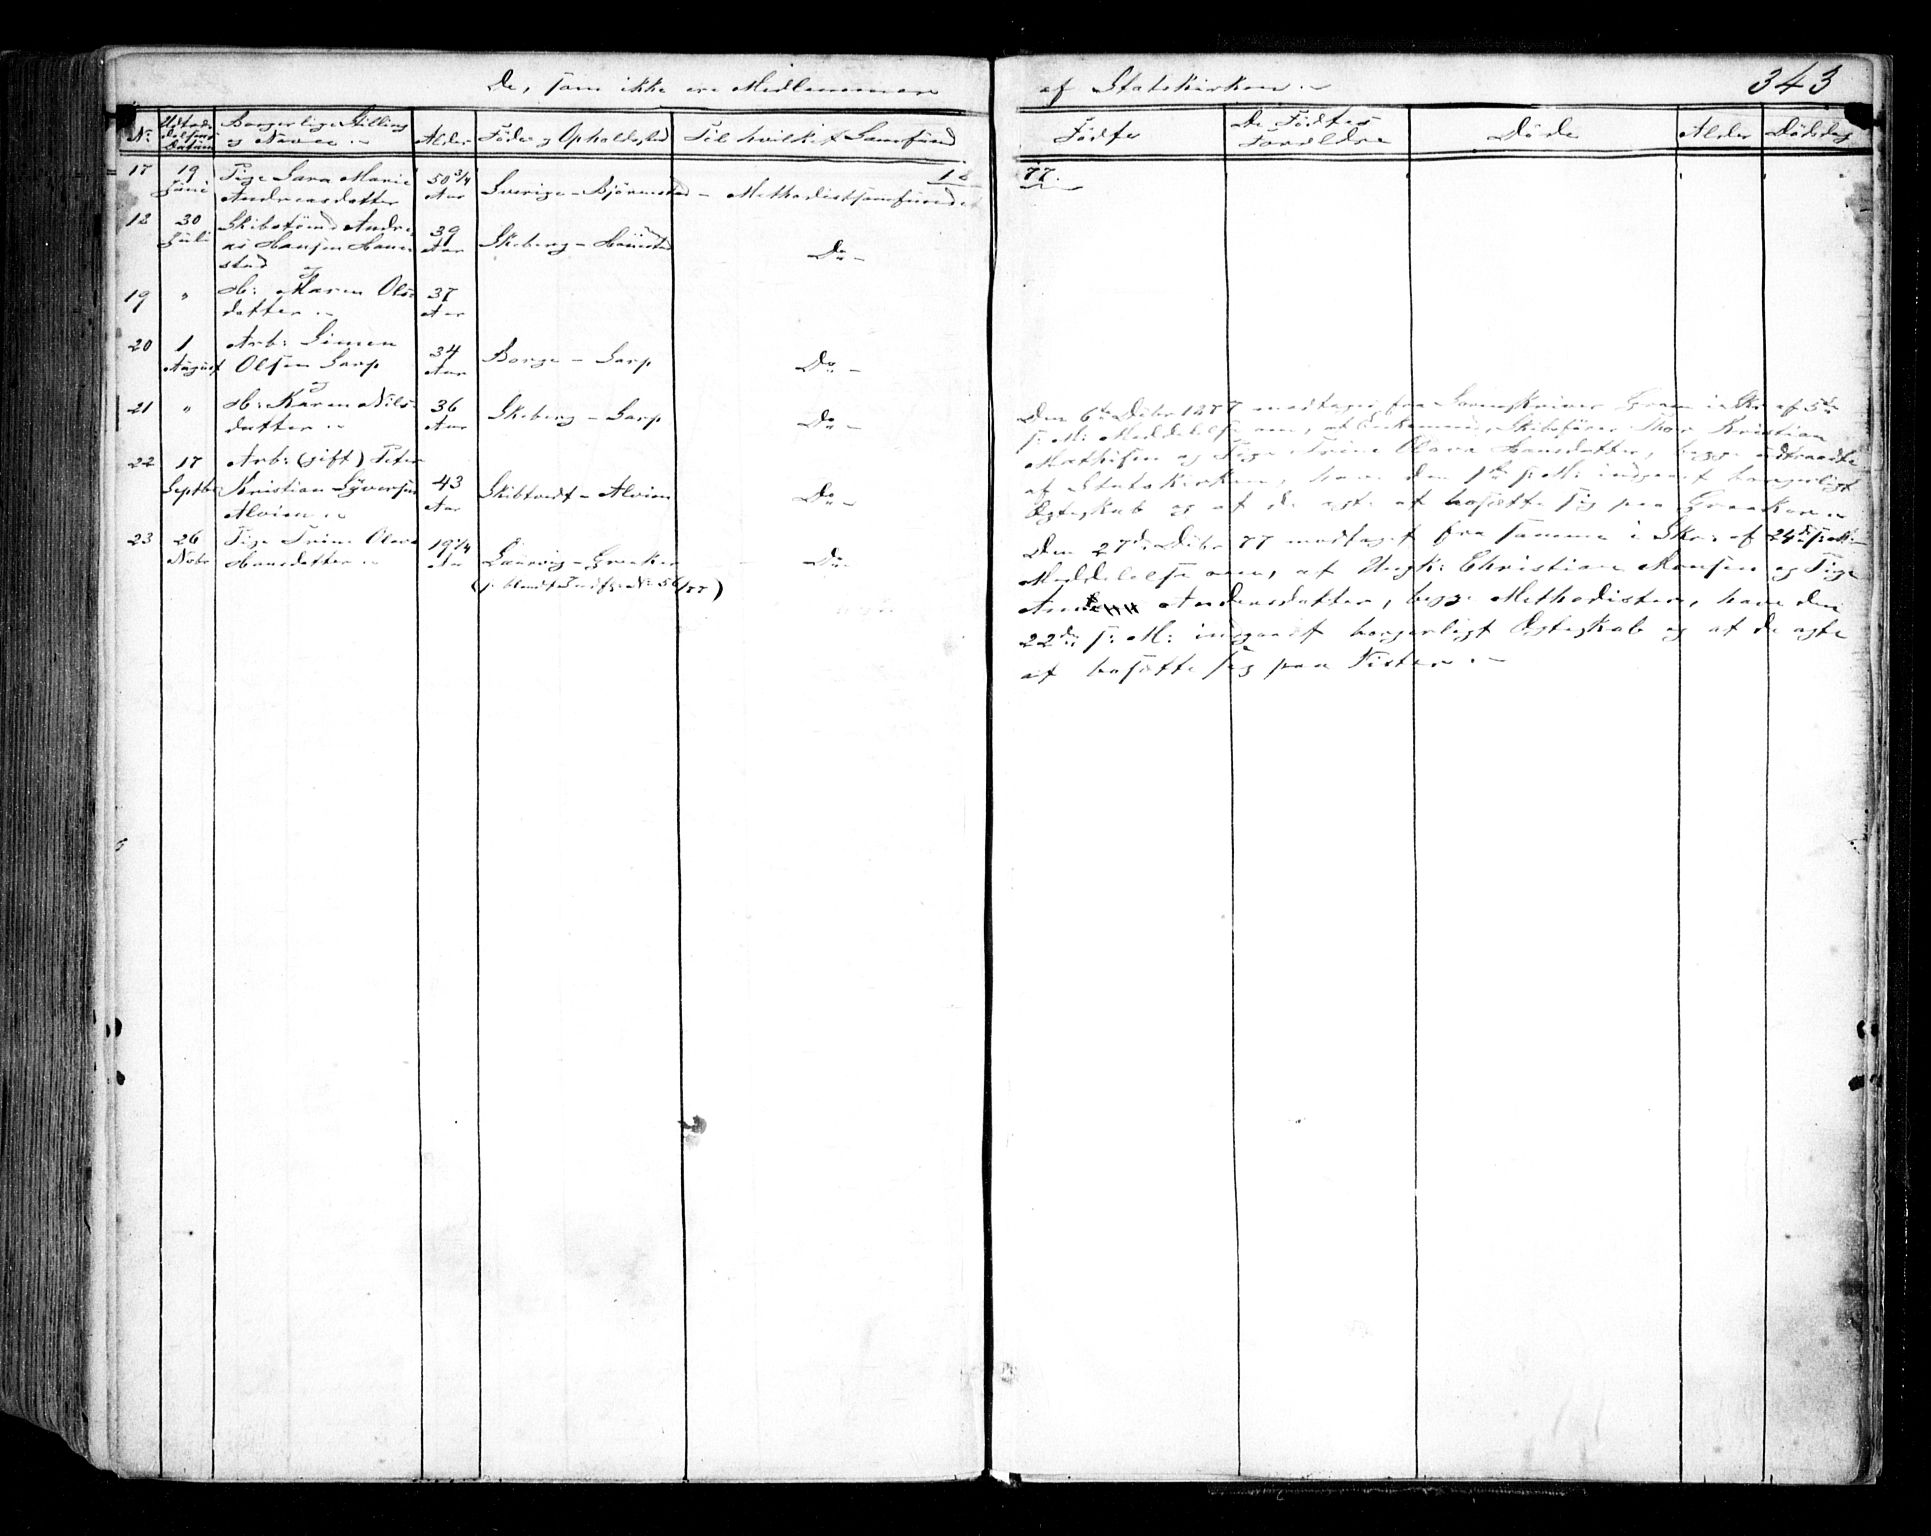 De, som ikke ere Medlemmer
No: Udtrædelsens Datum Borgerlige Stilling og Navne Alder Føde- og Opholdssted Til hvilket Samfund
18
17 19 Juni Pige Sara Marie
Andreasdatter 50 3/4 Aar Sverige - Bjørnstad - Methodistsamfundet
18 30 Juli Skibstømd Andre
as Hansen Haue
stad 39 Aar Skeberg - Do -
og
19 " H: Maren Ols
datter 37 Aar
20 1 August Arb: Simen
Olsen Sarp 34 Aar Borge - Sarp Do -
og
21 " H: Karen Nils
datter 36 Aar Skeberg - Sarp Do -
22 17 Septbr Arb: (gift) Peter
Kristian Syversen
Alvien 43 Aar Skibtvedt - Alvien Do -
23 26 Novbr Pige Trine Olava
Hansdatter 19 1/4 Aar Laurvig - Greaker Do -
No 56/77)
af Statskirken
343
Fødte De Fødtes Forældre Døde Alder Dødsdag
77.
Den 6te Dcbr 1877 modtaget fra Sorenskriver Gram i Skr: af 5te
s: M: Meddelelse om, at Skibsfører Thor Kristian
Mathisen og Pige Trine Olava Hansdatter, begge udtraadte
af Statskirken, have den 1ste s: M: indgaaet borgerligt
Ægteskab og at de agte at bosætte sig paa Greaker
Den 27de Dcbr 77 modtaget fra samme i Skr: af 24de s: M:
Meddelelse om, at Ungk: Christian Monsen og Pige
Andersdatter, begge Methodister, have den
22de s: M: indgaaet borgerligt Ægteskab og at de agte
at bosætte sig paa Nister